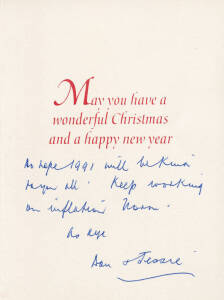 May you have a
wonderful Christmas
and a happy new year
hope 1991 will be kind
to you all. Keep working
on inflation Norm.
As aye
Dan & Jessie